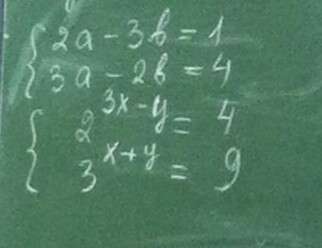 2a - 3b = 1
3a - 2b = 4
2^{3x-y} = 4
3^{x+y} = 9